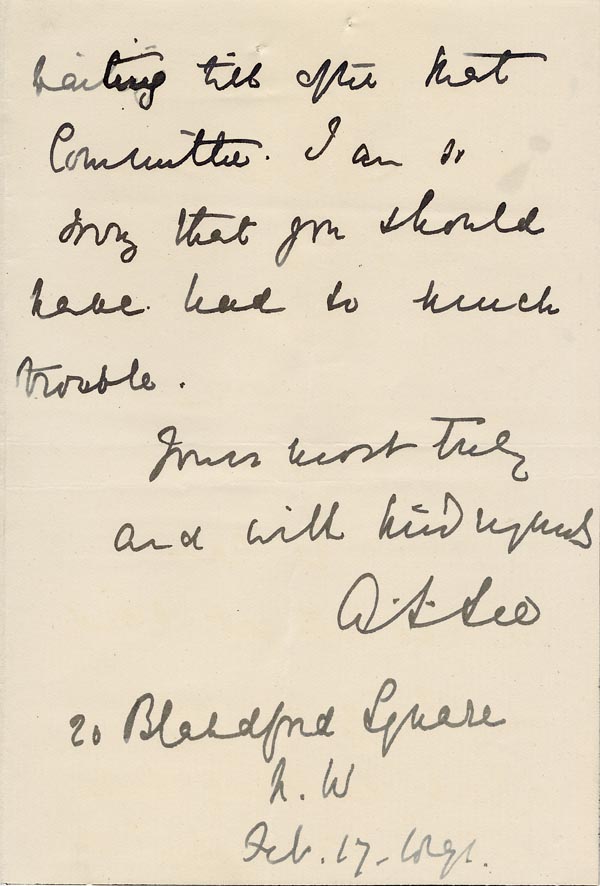 waiting till after that
Committee. I am so
sorry that you should
have had so much
trouble.
Yours most truly
and with kind regards
20 Blandford Square
N. W
Feb. 17-